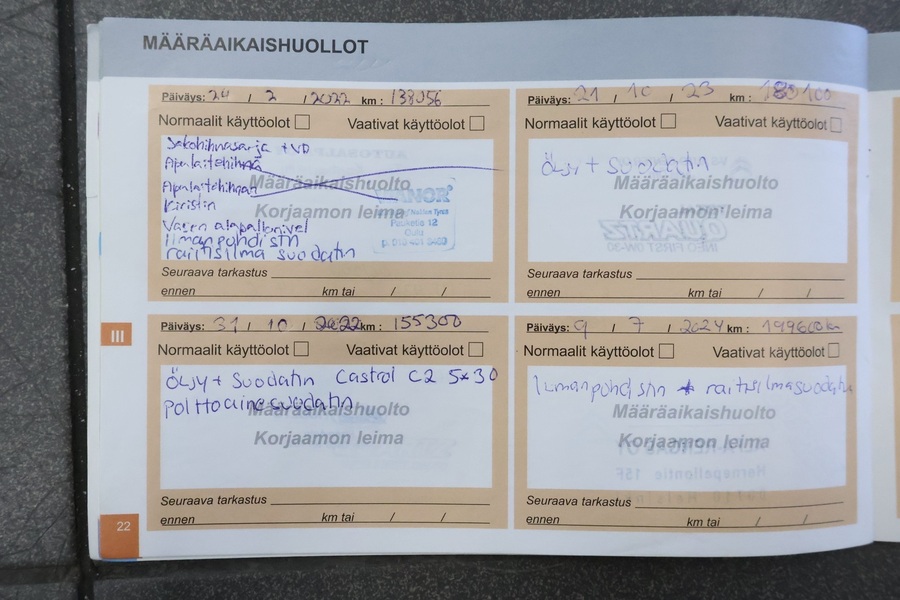 MÄÄRÄAIKAISHUOLLOT
Päiväys: 24 / 2 / 2022 km : 138056
Normaalit käyttöolot Vaativat käyttöolot
Jakohihnasarja + VP
Apulaitehihna
Apulaitehihnan
kiristin
Vasen alapallonivel
ilmanpuhdistin
raitisilma suodatin
Määräaikaishuolto
Korjaamon leima
Seuraava tarkastus
ennen km tai / /
Päiväys: 21 / 10 / 23 km : 180100
Normaalit käyttöolot Vaativat käyttöolot
Öljy + Suodatin
Määräaikaishuolto
Korjaamon leima
Seuraava tarkastus
ennen km tai / /
III
Päiväys: 31 / 10 / 2022 km : 155300
Normaalit käyttöolot Vaativat käyttöolot
Öljy + Suodatin Castrol C2 5x30
polttoainesuodatin
Määräaikaishuolto
Korjaamon leima
Seuraava tarkastus
ennen km tai / /
Päiväys: 9 / 7 / 2024 km : 199600km
Normaalit käyttöolot Vaativat käyttöolot
Ilmanpuhdistin + raitisilmasuodatin
Määräaikaishuolto
Korjaamon leima
Seuraava tarkastus
ennen km tai / /
22